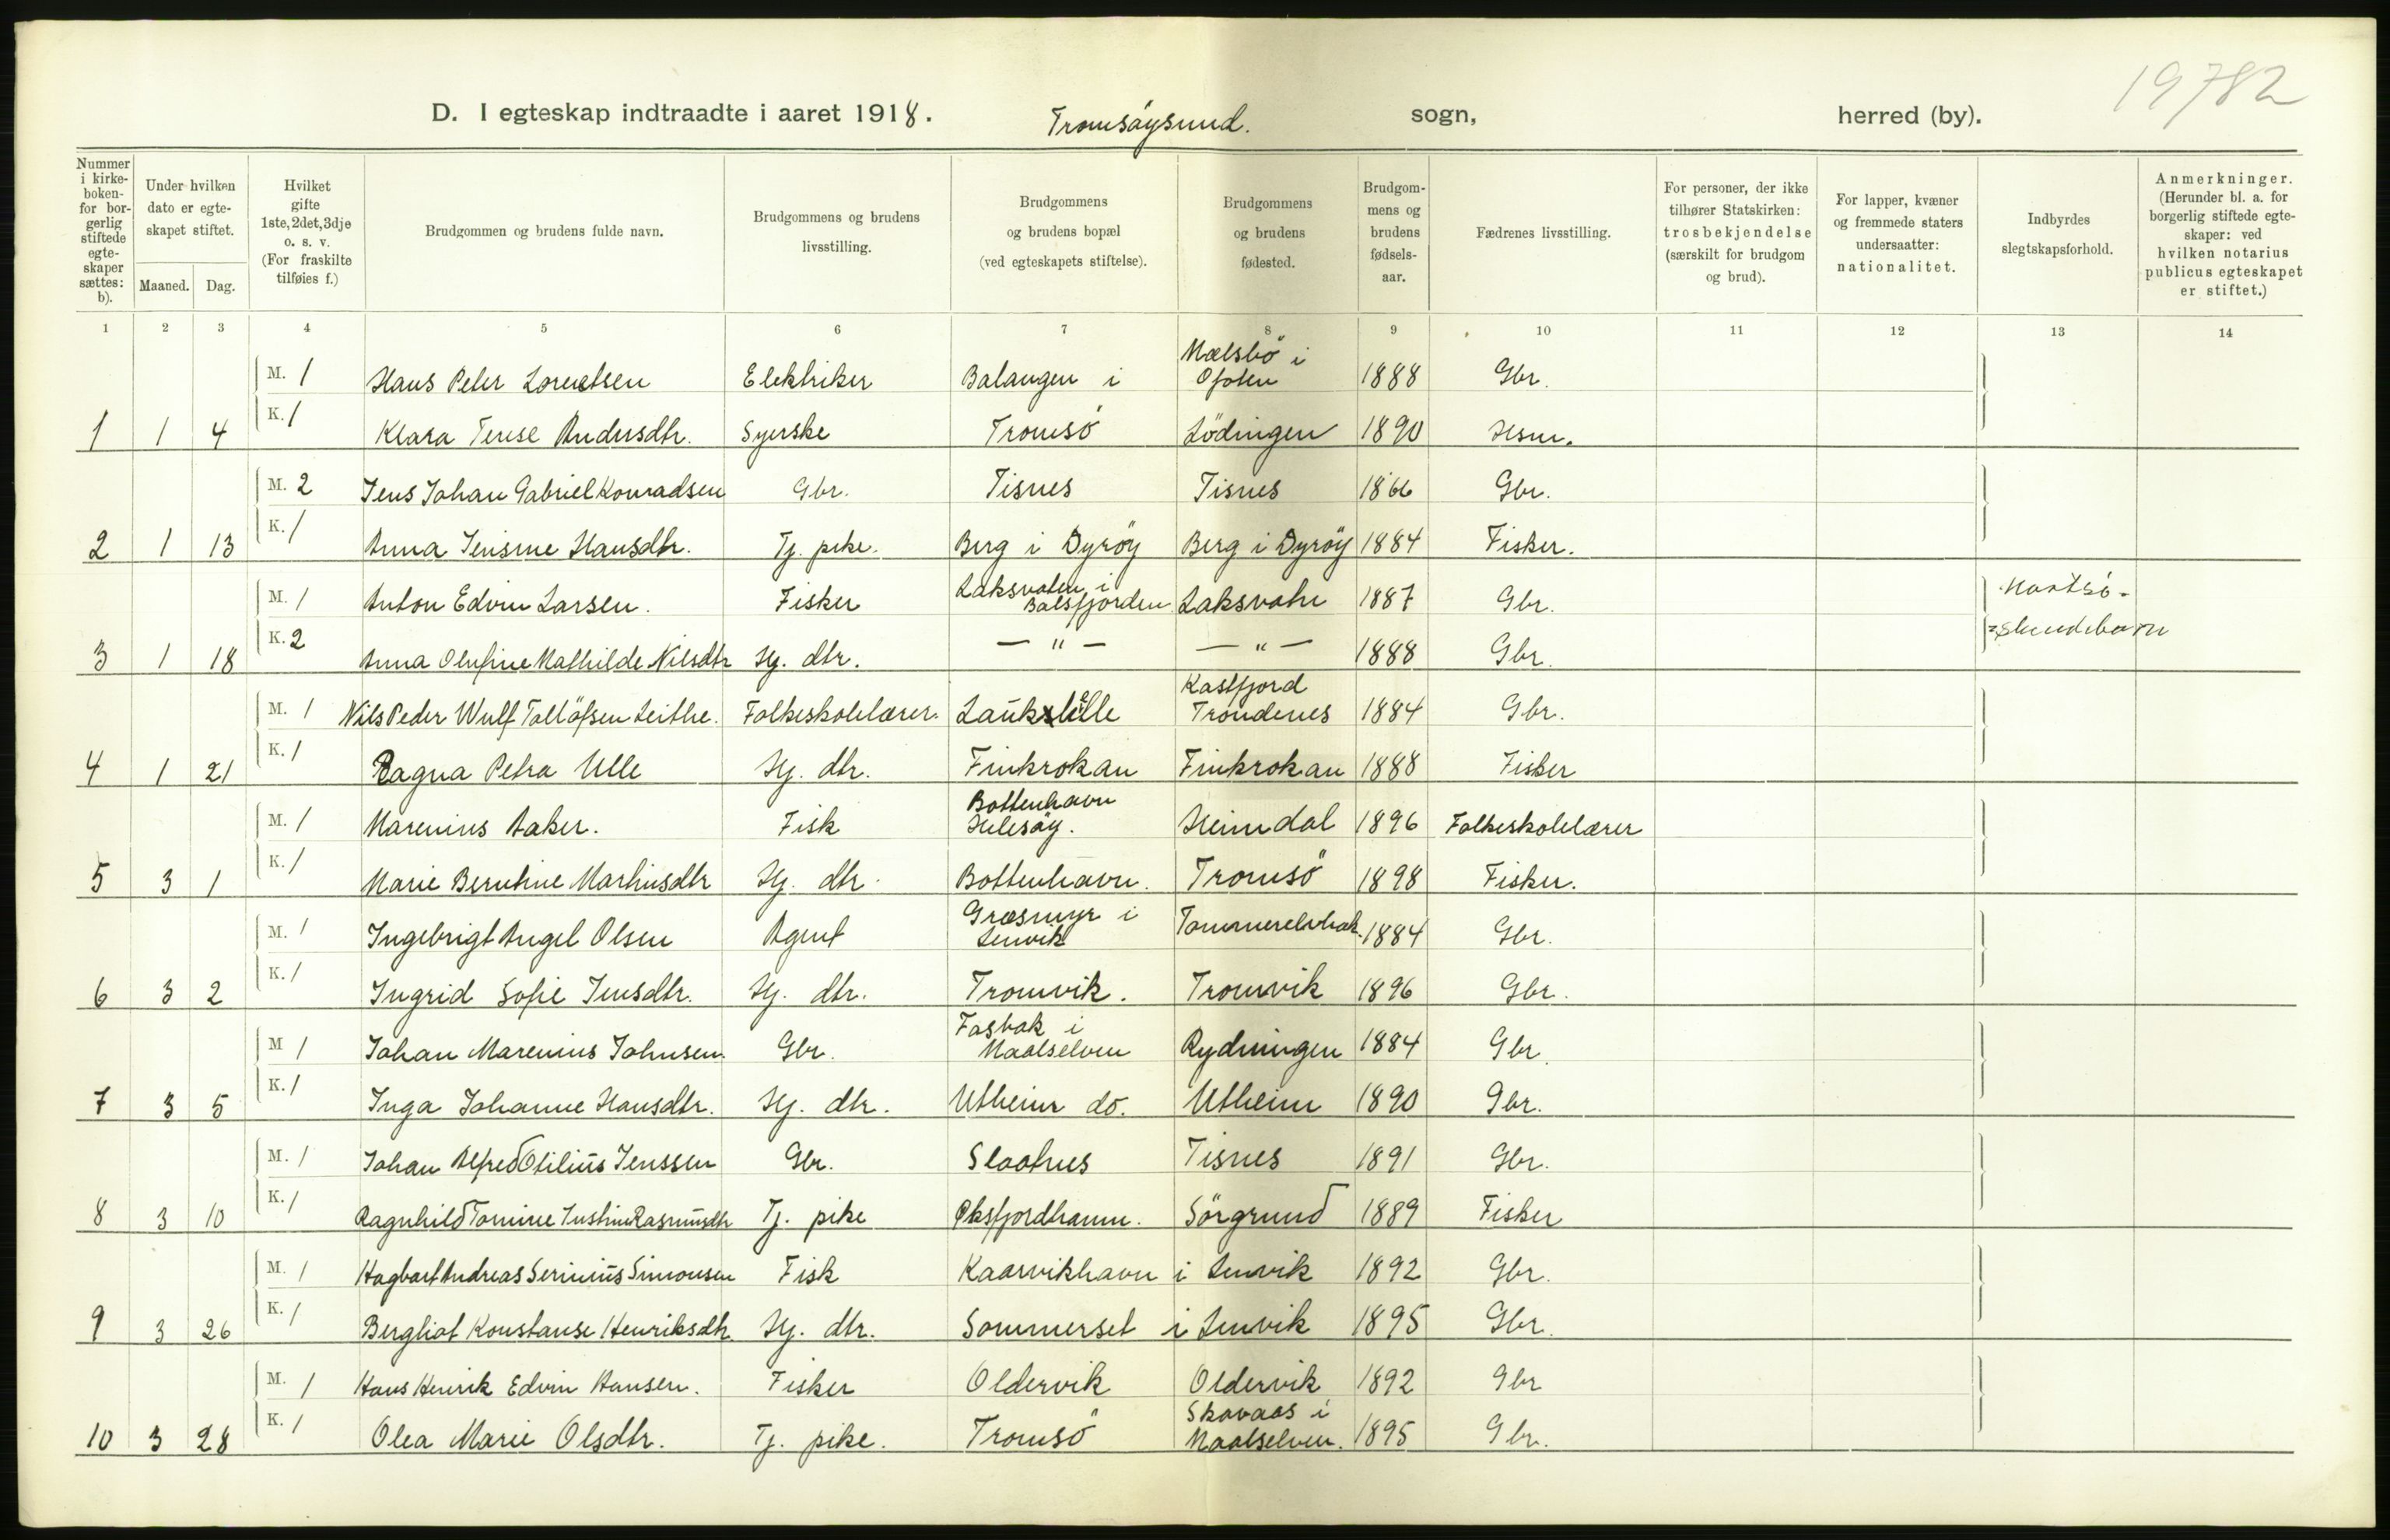 19782
D. I egteskap indtraadte i aaret 1918. Tromsöysund. sogn, herred (by).
Nummer i kirke-boken-for bor-gerlig stiftede egte-skaper sættes: b).
Under hvilken dato er egte-skapet stiftet.
Maaned. Dag.
Hvilket gifte 1ste, 2det, 3dje o. s. v. (For fraskilte tilføies f.)
Brudgommen og brudens fulde navn.
Brudgommens og brudens livsstilling.
Brudgommens og brudens bopæl (ved egteskapets stiftelse).
Brudgommens og brudens fødested.
Brudgom-mens og brudens fødsels-aar.
Fædrenes livsstilling.
For personer, der ikke tilhører Statskirken: trosbekjendelse (særskilt for brudgom og brud).
For lapper, kvæner og fremmede staters undersaatter: nationalitet.
Indbyrdes slegtskapsforhold.
Anmerkninger. (Herunder bl. a. for borgerlig stiftede egte-skaper: ved hvilken notarius publicus egteskapet er stiftet.)
1 2 3 4 5 6 7 8 9 10 11 12 13 14
M. 1 Hans Peter Lorentsen Elektriker Balangen i Mælsbö i Ofoten 1888 Gbr.
1 1 4 K. 1 Klara Terese Andersdtr. Syerske Tromsö Lödingen 1890 Hsm.
M. 2 Jens Johan Gabriel Konradsen Gbr. Tisnes Tisnes 1866 Gbr.
2 1 13 K. 1 Anna Jensine Hansdtr. Tj. pike. Berg i Dyröy Berg i Dyröy 1884 Fisker.
M. 1 Anton Edvin Larsen. Fisker Laksvatn i Balsfjorden Laksvatn 1887 Gbr.
3 1 18 K. 2 Anna Olufine Mathilde Nilsdtr Hj. dtr. — " — — " — 1888 Gbr. skendebarn
M. 1 Nils Peder Wulf Tollöfsen Leithe. Folkeskolelærer. Laukslelle Kasfjord Trondenes 1884 Gbr.
4 1 21 K. 1 Ragna Petra Ulle Hj. dtr. Finkrokan Finkrokan 1888 Fisker
M. 1 Marenius Aaker. Fisk Bottenhavn Helesöy. Heimdal 1896 Folkeskolelærer
5 3 1 K. 1 Marie Berntine Martinsdtr Hj. dtr. Bottenhavn. Tromsö 1898 Fisker.
M. 1 Ingebrigt Angel Olsen Agent Græsmyr i Lenvik Tommerelvbak. 1884 Gbr.
6 3 2 K. 1 Ingrid Sofie Jensdtr. Hj. dtr. Tromvik. Tromvik 1896 Gbr.
M 1 Johan Marenius Johnsen. Gbr. Fasbak i Maalselven Rydningen 1884 Gbr.
7 3 5 K. 1 Inga Johanne Hansdtr. Hj. dtr. Utheim do. Utheim 1890 Gbr.
M. 1 Johan Alfred Otilius Jenssen Gbr. Slaatnes Tisnes 1891 Gbr.
8 3 10 K. 1 Ragnhild Tomine Justine Rasmusdtr Tj. pike Oksfjordhamn. Sörgrund 1889 Fisker
M. 1 Hagbart Andreas Serinius Simonsen Fisk Kaarvikhavn i Lenvik 1892 Gbr.
9 3 26 K. 1 Bergliot Konstanse Henriksdtr Hj. dtr. Sommerset i Lenvik 1895 Gbr.
M. 1 Hans Henrik Edvin Hansen. Fisker Oldervik Oldervik 1892 Gbr
10 3 28 K. 1 Olea Marie Olsdtr. Tj. pike. Tromsö Skavaas i Maalselven. 1895 Gbr.